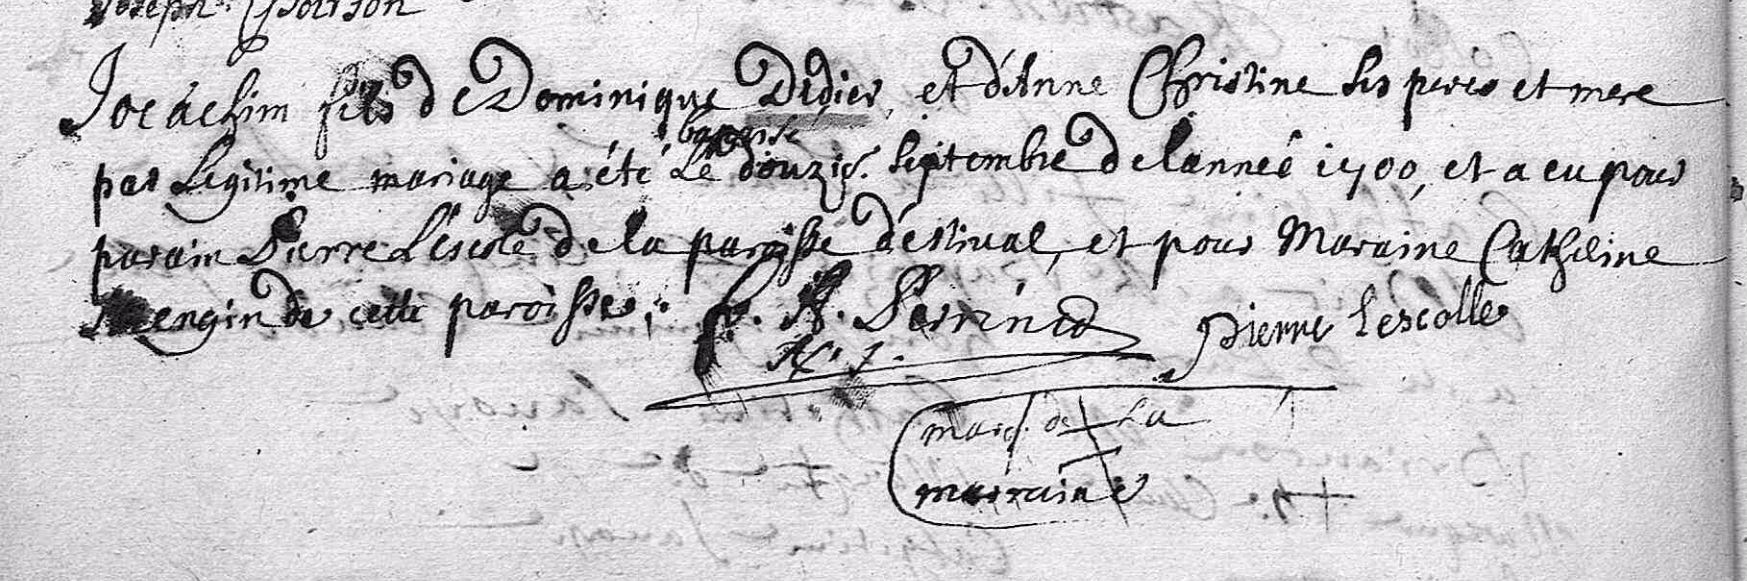 Joseph Poirson
Joeachim fils de Dominique Didier, et d'Anne Christine ses peres et mere
baptisé
par Legitime mariage a été Le douzie. septembre de lanneé 1700, et a eu pour
parain Pierre Lescole de la paroisse d'éstival, et pour Maraine Catherine
Mengin de cette paroisse.
Pierre Lescolle
marq. de La
marraine